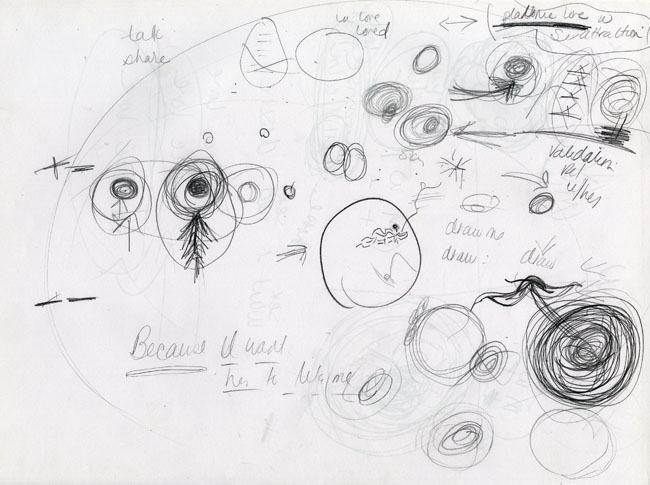 talk
share
in love
loved
platonic love w
attraction
validation:
draw me
draw:
draw
Because I want
her to like me